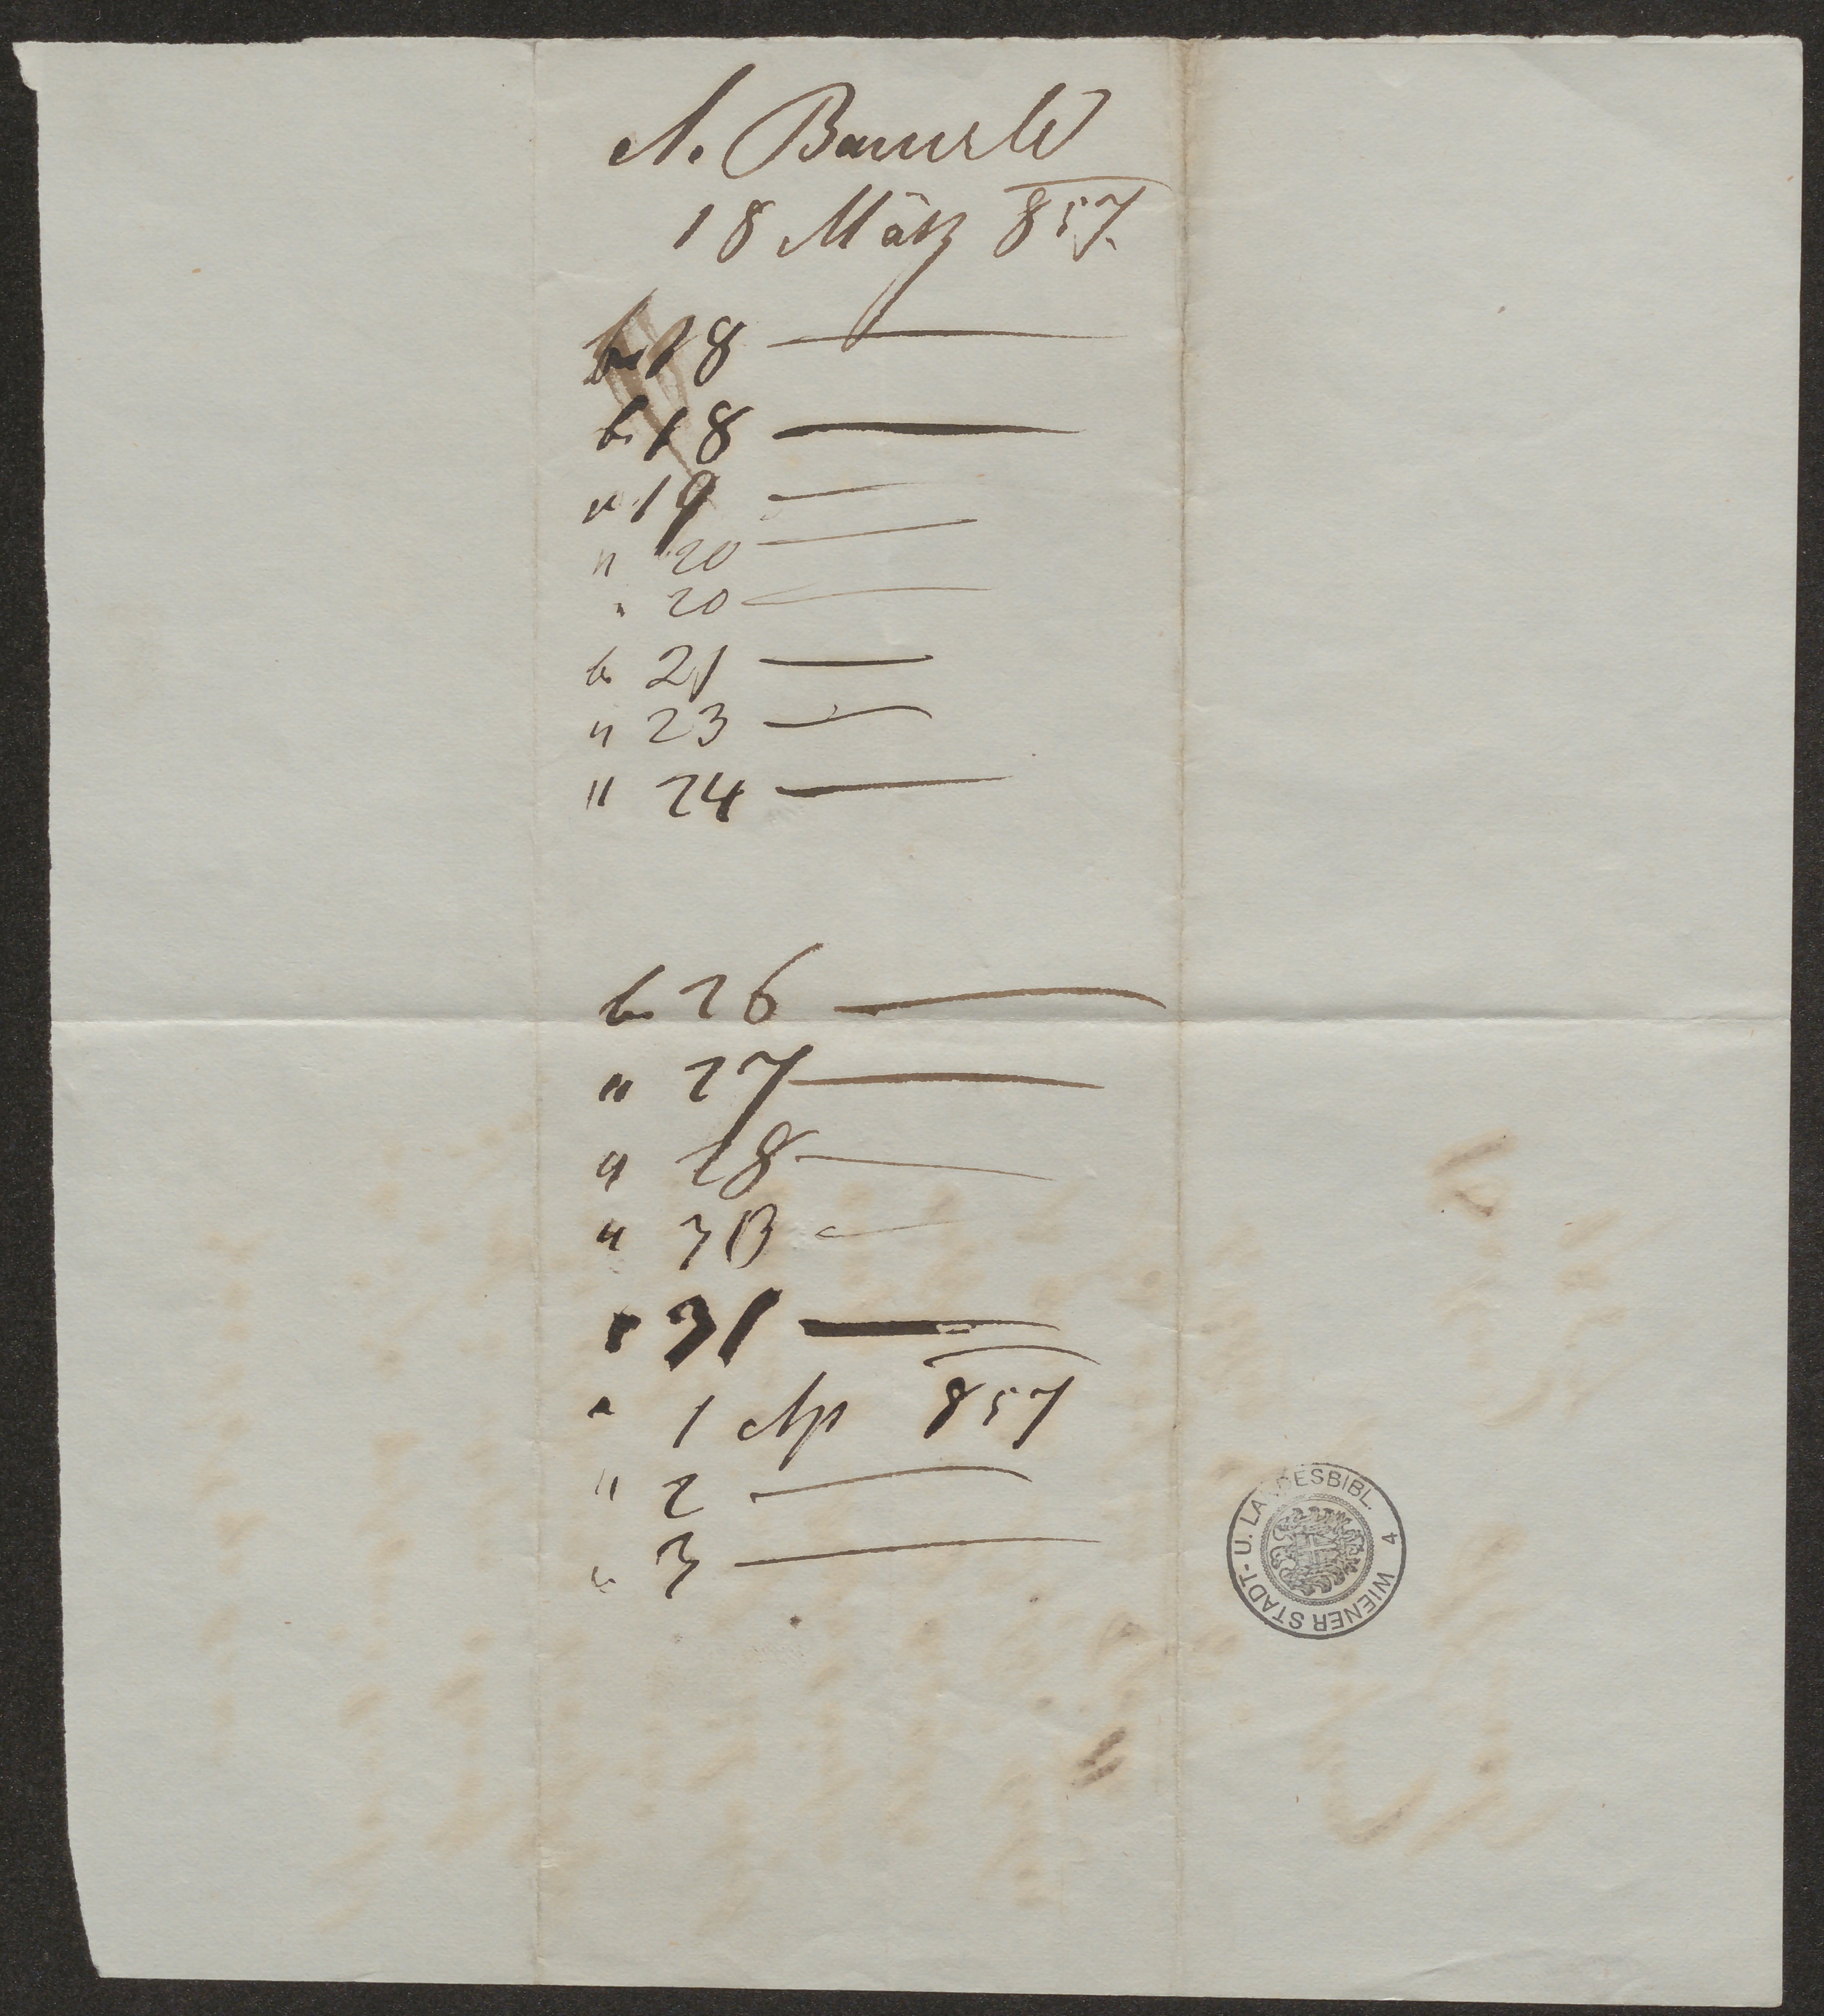 A. Bäuerle
18 März 857.
b. 18 —
b. 18 —
" 19 —
" 20 —
" 20 —
b. 21 —
" 23 —
" 24 —
b. 26 —
" 27 —
" 28 —
" 30 —
" 31 —
" 1 Ap 857
" 2 —
" 3 —
WIENER STADT- U. LANDESBIBL. 4